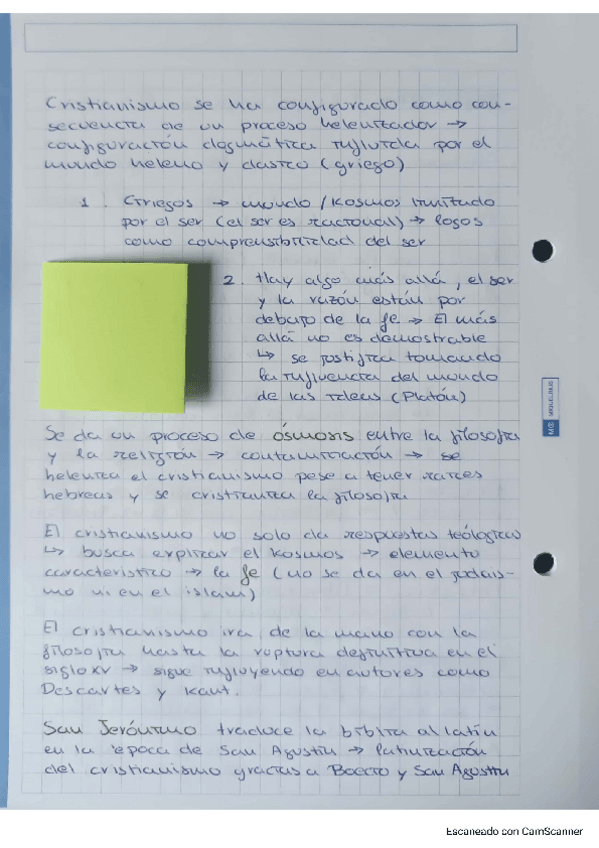 Cristianismo se ha configurado como con-
secuencia de un proceso helenizador →
configuración dogmática influida por el
mundo heleno y clásico (griego)
1. Griegos → mundo / Kosmos limitado
por el ser (el ser es racional) → logos
como comprensibilidad del ser
2. Hay algo más allá, el ser
y la razón están por
debajo de la fe → El más
allá no es demostrable
↳ se justifica tomando
la influencia del mundo
de las ideas (Platón)
Se da un proceso de ósmosis entre la filosofía
y la religión → contaminación → se
heleniza el cristianismo pese a tener raíces
hebreas y se cristianiza la filosofía
El cristianismo no solo da respuestas teológicas
↳ busca explicar el Kosmos → elemento
característico → la fe (no se da en el judaís-
mo ni en el islam)
El cristianismo ira de la mano con la
filosofía hasta la ruptura definitiva en el
siglo XV → sigue influyendo en autores como
Descartes y Kant.
San Jerónimo traduce la biblia al latín
en la época de San Agustín → latinización
del cristianismo gracias a Boecio y San Agustín
MIQUELRIUS
Escaneado con CamScanner